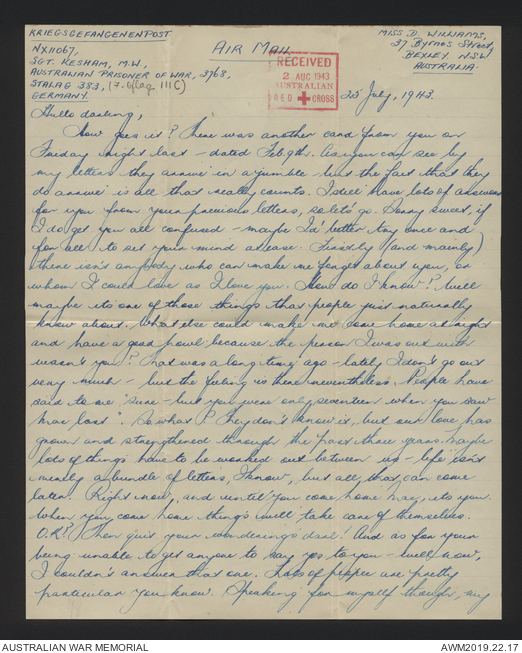 KRIEGSGEFANGENENPOST
NX11067,
SGT. KESHAM, M.W.,
AUSTRALIAN PRISONER OF WAR, 3768,
STALAG 383, (7. Oflag IIIC)
GERMANY.
AIR MAIL
MISS D. WILLIAMS,
37 Byrnes Street,
BEXLEY N.S.W.
AUSTRALIA.
RECEIVED
2 AUG 1943
AUSTRALIAN
RED CROSS
25 July, 1943.
Hullo darling,
How goes it? There was another card from you on
Friday night last - dated Feb. 9th. As you can see by
my letters they answer in a jumble but the fact that they
do answer is all that really counts. I still have lots of answers
for you from your previous letters, so let's go. Sorry sweet, if
I do get you all confused - maybe I'd better try once and
for all to set your mind at ease. Firstly (and mainly)
there isn't anybody who can make me forget about you, or
whom I could love as I love you. How do I know? Well
maybe it's one of those things that people just naturally
know about. What else could make me come home at night
and have a good howl because the person I was out with
wasn't you? That was a long time ago - lately I don't go out
very much - but the feeling is there nevertheless. People have
said to me "sure - but you were only seventeen when you saw
Mac last". So what? They don't know it, but our love has
grown and strengthened through the past three years. Maybe
lots of things have to be worked out between us - life isn't
merely a bundle of letters, I know, but all that can come
later. Right now, and until you come home Mac, it's you.
When you come home things will take care of themselves.
O.K? Then quit your wonderings darl! And as for your
being unable to get anyone to say yes to you - well now,
I couldn't answer that one. Lots of people are pretty
particular you know. Speaking for myself though, my
AUSTRALIAN WAR MEMORIAL
AWM2019.22.17